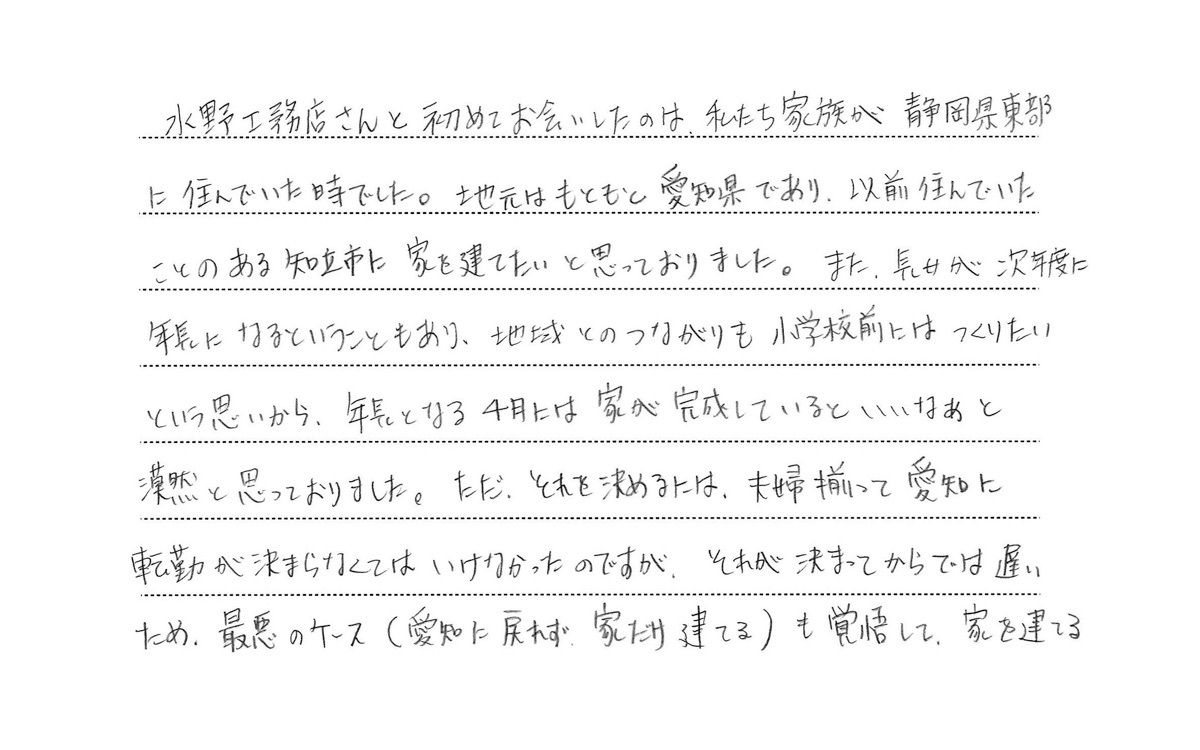 水野工務店さんと初めてお会いしたのは、私たち家族が静岡県東部
に住んでいた時でした。地元はもともと愛知県であり、以前住んでいた
ことのある知立市に家を建てたいと思っておりました。また、長女が次年度に
年長になるということもあり、地域とのつながりも小学校前にはつくりたい
という思いから、年長となる4月には家が完成しているといいなぁと
漠然と思っておりました。ただ、それを決めるには、夫婦揃って愛知に
転勤が決まらなくてはいけなかったのですが、それが決まってからでは遅い
ため、最悪のケース(愛知に戻れず、家だけ建てる)も覚悟して、家を建てる